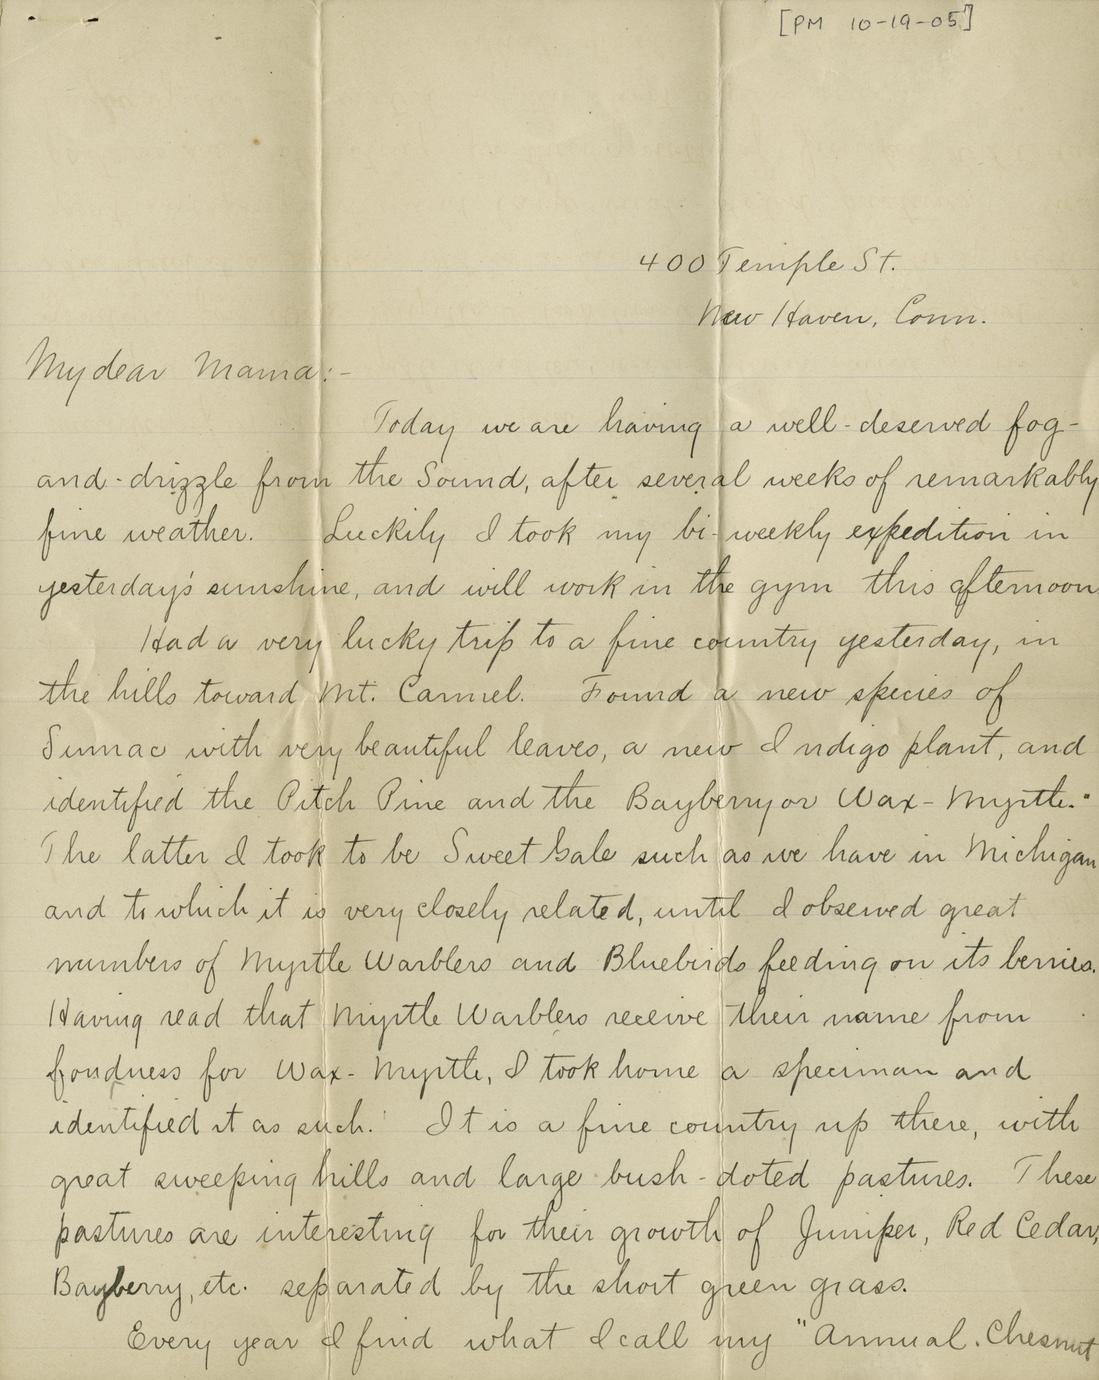 [PM 10-19-05]
400 Temple St.
New Haven, Conn.
My dear Mama:-
Today we are having a well-deserved fog-
and-drizzle from the Sound, after several weeks of remarkably
fine weather. Luckily I took my bi-weekly expedition in
yesterday's sunshine, and will work in the gym this afternoon
Had a very lucky trip to a fine country yesterday, in
the hills toward Mt. Carmel. Found a new species of
Sumac with very beautiful leaves, a new Indigo plant, and
identified the Pitch Pine and the Bayberry or Wax-Myrtle."
The latter I took to be Sweet Gale such as we have in Michigan
and to which it is very closely related, until I observed great
numbers of Myrtle Warblers and Bluebirds feeding on its berries.
Having read that Myrtle Warblers receive their name from
fondness for Wax-Myrtle, I took home a speciman and
identified it as such. It is a fine country up there, with
great sweeping hills and large bush-doted pastures. These
pastures are interesting for their growth of Juniper, Red Cedar,
Bayberry, etc. separated by the short green grass.
Every year I find what I call my "Annual Chesnut